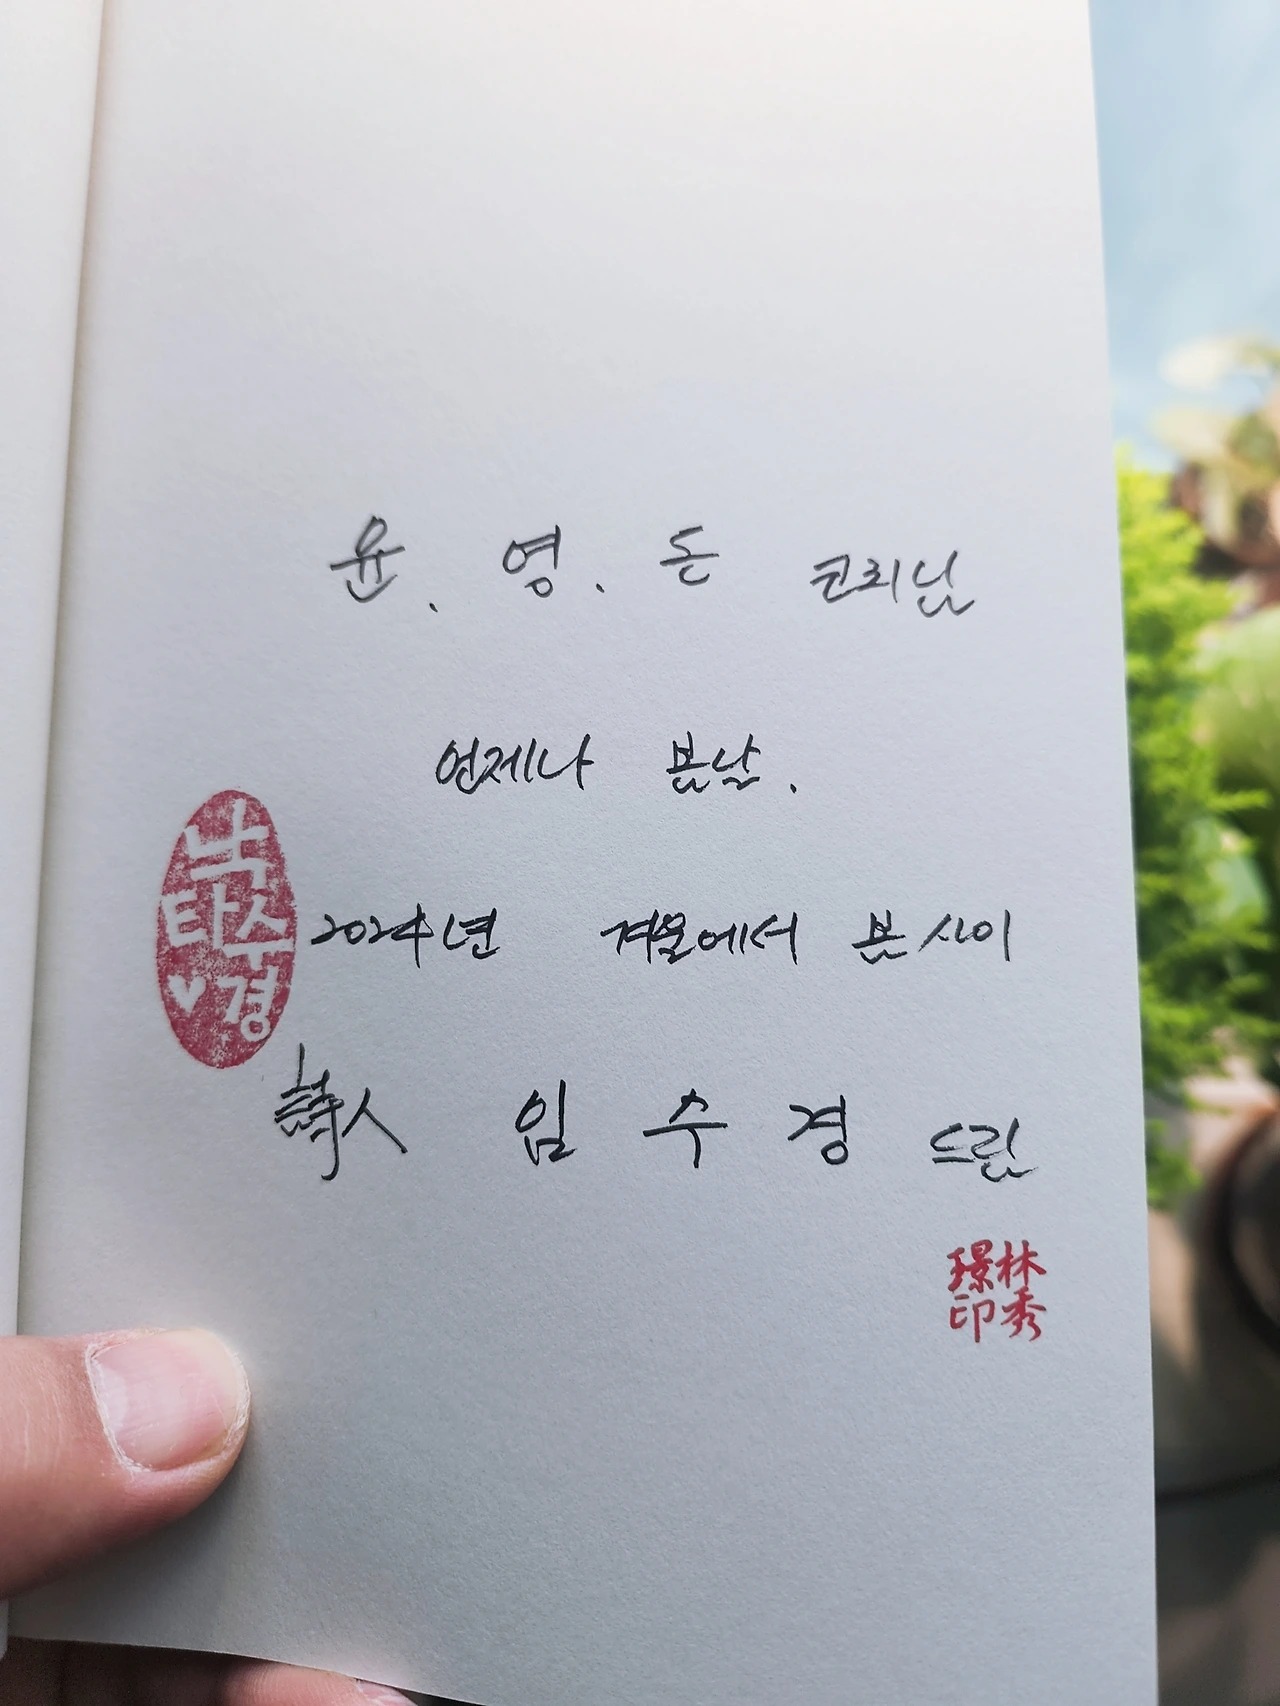 윤. 영. 돈 코치님
언제나 봄날.
2024년 겨울에서 봄 사이
詩人 임 수 경 드림
낙타
수경
林秀
璟印